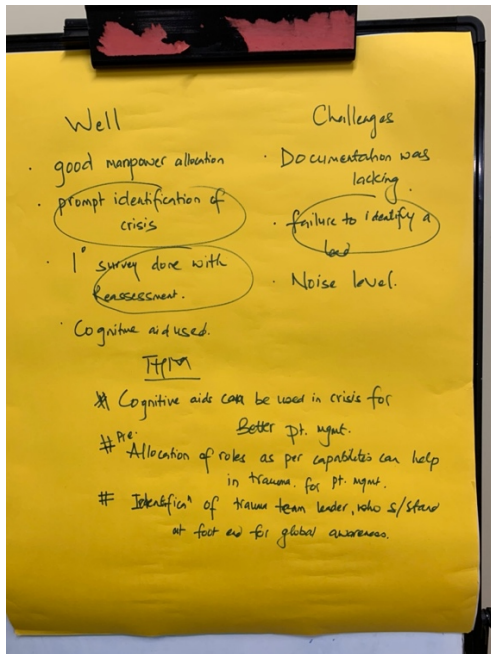 Well
Challenges
· good manpower allocation
· prompt identification of
crisis
· 1° survey done with
Reassessment.
· Cognitive aid used.
· Documentation was
lacking.
· failure to identify a
lead
· Noise level.
THM
# Cognitive aids can be used in crisis for
Better pt. mgmt.
# Pre. Allocation of roles as per capabilities can help
in trauma. for pt. mgmt.
# Identificⁿ of trauma team leader, who s/stand
at foot end for global awareness.